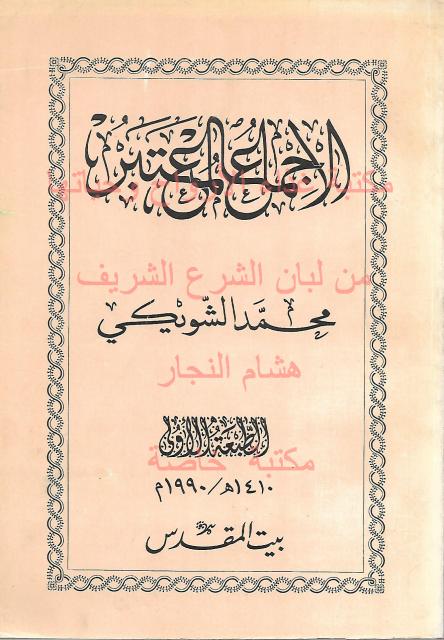 الإجماع المعتبر
مكتبة غذاء الأرواح وحياتها
من لبان الشرع الشريف
محمد الشويكي
هشام النجار
الطبعة الأولى
مكتبة خاصة
١٤١٠هـ/١٩٩٠م
بيت المقدس